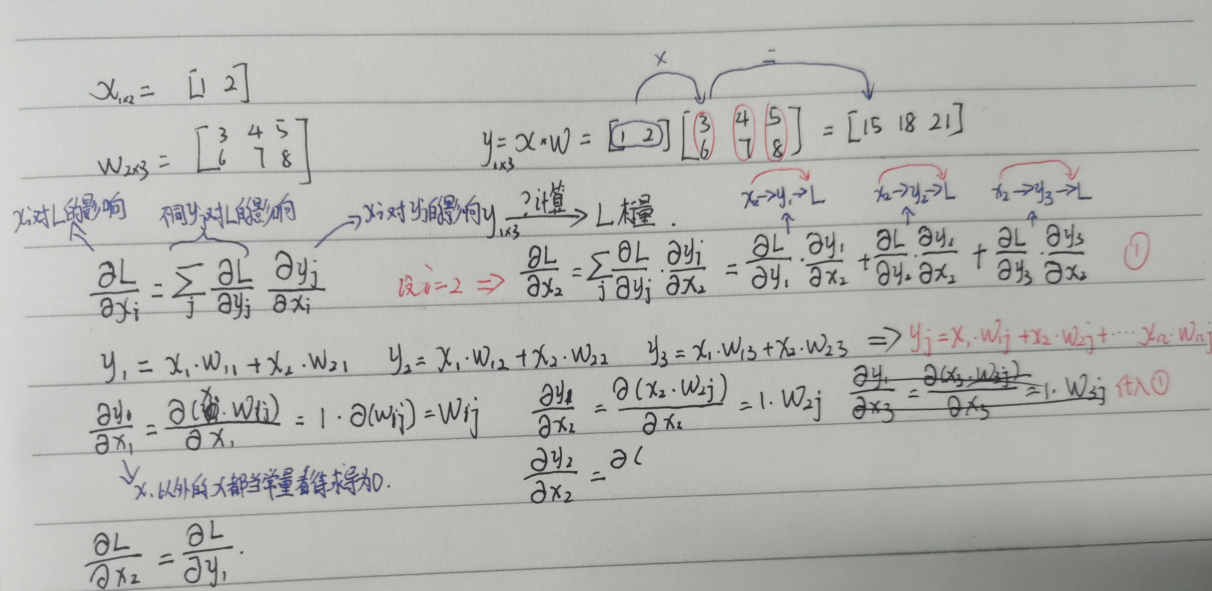 x₁ₓ₂ = [1 2]
× =
W₂ₓ₃ = [3 4 5; 6 7 8]
y₁ₓ₃ = x*W = [1 2] [3 4 5; 6 7 8] = [15 18 21]
xᵢ对L的影响 不同yⱼ对L的影响 →xᵢ对yⱼ的影响 y₁ₓ₃ —?计算→ L 标量.
x₂→y₁→L x₂→y₂→L x₂→y₃→L
∂L/∂xᵢ = ∑ⱼ ∂L/∂yⱼ ∂yⱼ/∂xᵢ 设i=2 ⇒ ∂L/∂x₂ = ∑ⱼ ∂L/∂yⱼ · ∂yⱼ/∂x₂ = ∂L/∂y₁ · ∂y₁/∂x₂ + ∂L/∂y₂ · ∂y₂/∂x₂ + ∂L/∂y₃ · ∂y₃/∂x₂ ①
y₁ = x₁·W₁₁ + x₂·W₂₁ y₂ = x₁·W₁₂ + x₂·W₂₂ y₃ = x₁·W₁₃ + x₂·W₂₃ ⇒ yⱼ = x₁·W₁ⱼ + x₂·W₂ⱼ + ⋯ xₙ·Wₙⱼ
∂y₁/∂x₁ = ∂(x₁·W₁ⱼ)/∂x₁ = 1·∂(W₁ⱼ) = W₁ⱼ ∂y₁/∂x₂ = ∂(x₂·W₂ⱼ)/∂x₂ = 1·W₂ⱼ ∂y₁/∂x₃ = ∂(x₃·W₃ⱼ)/∂x₃ = 1·W₃ⱼ 代入①
x₁以外的x都当常量看待求导为0.
∂y₂/∂x₂ = ∂(
∂L/∂x₂ = ∂L/∂y₁ ·